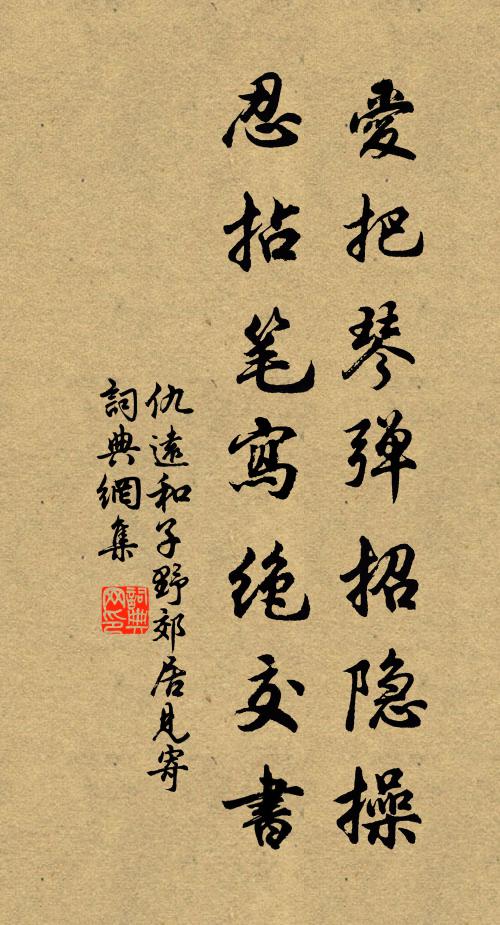 愛把琴弹招隐操
忍拈笔寫绝交書
仇遠和子野郊居見寄
詞典網集
詞典网印